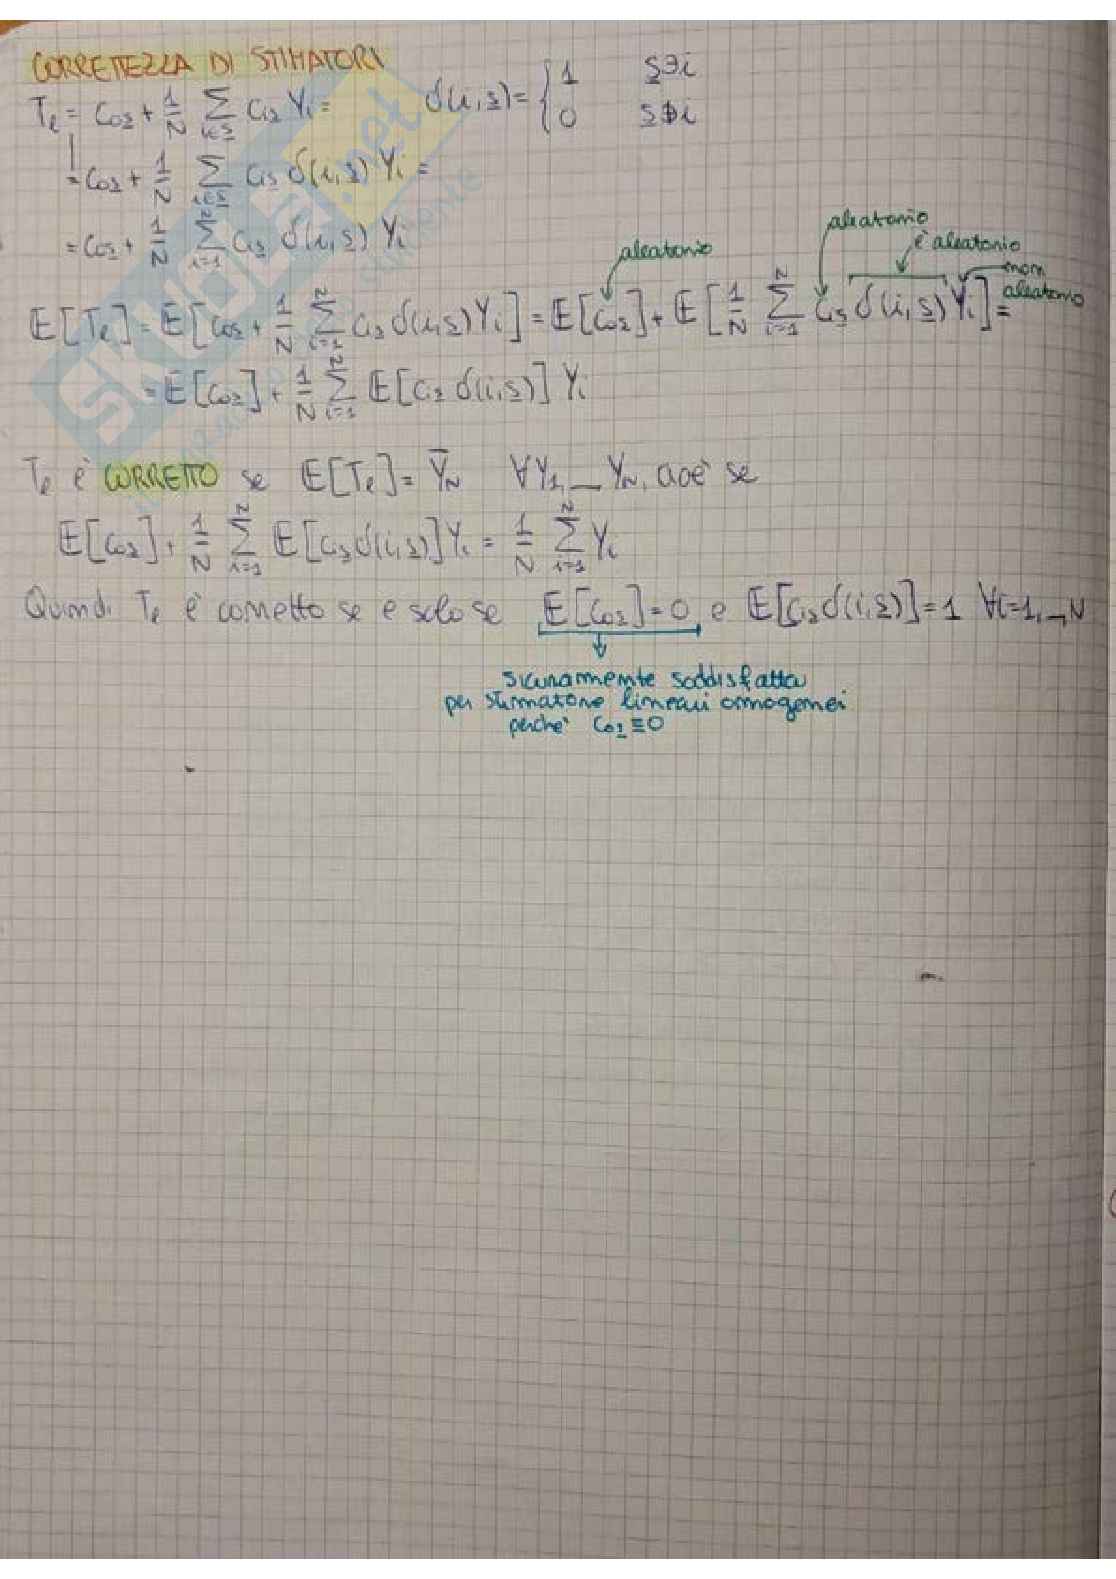 CORRETTEZZA DI STIMATORI
T_ℓ = C_{0s} + 1/N Σ_{i∈s} C_{is} Y_i = δ(i,s) = { 1 s∋i
0 s∌i
= C_{0s} + 1/N Σ_{i∈s} C_{is} δ(i,s) Y_i =
= C_{0s} + 1/N Σ_{i=1}^N C_{is} δ(i,s) Y_i
aleatorio aleatorio è aleatorio non aleatorio
E[T_ℓ] = E[C_{0s} + 1/N Σ_{i=1}^N C_{is} δ(i,s) Y_i] = E[C_{0s}] + E[1/N Σ_{i=1}^N C_{is} δ(i,s) Y_i] =
= E[C_{0s}] + 1/N Σ_{i=1}^N E[C_{is} δ(i,s)] Y_i
T_ℓ è CORRETTO se E[T_ℓ] = Ȳ_N ∀Y_1, — Y_N, cioè se
E[C_{0s}] + 1/N Σ_{i=1}^N E[C_{is} δ(i,s)] Y_i = 1/N Σ_{i=1}^N Y_i
Quindi T_ℓ è corretto se e solo se E[C_{0s}] = 0 e E[C_{is} δ(i,s)] = 1 ∀i=1,—,N
sicuramente soddisfatta
per stimatore lineari omogenei
perché C_{0s} ≡ 0
SKUOLA.net